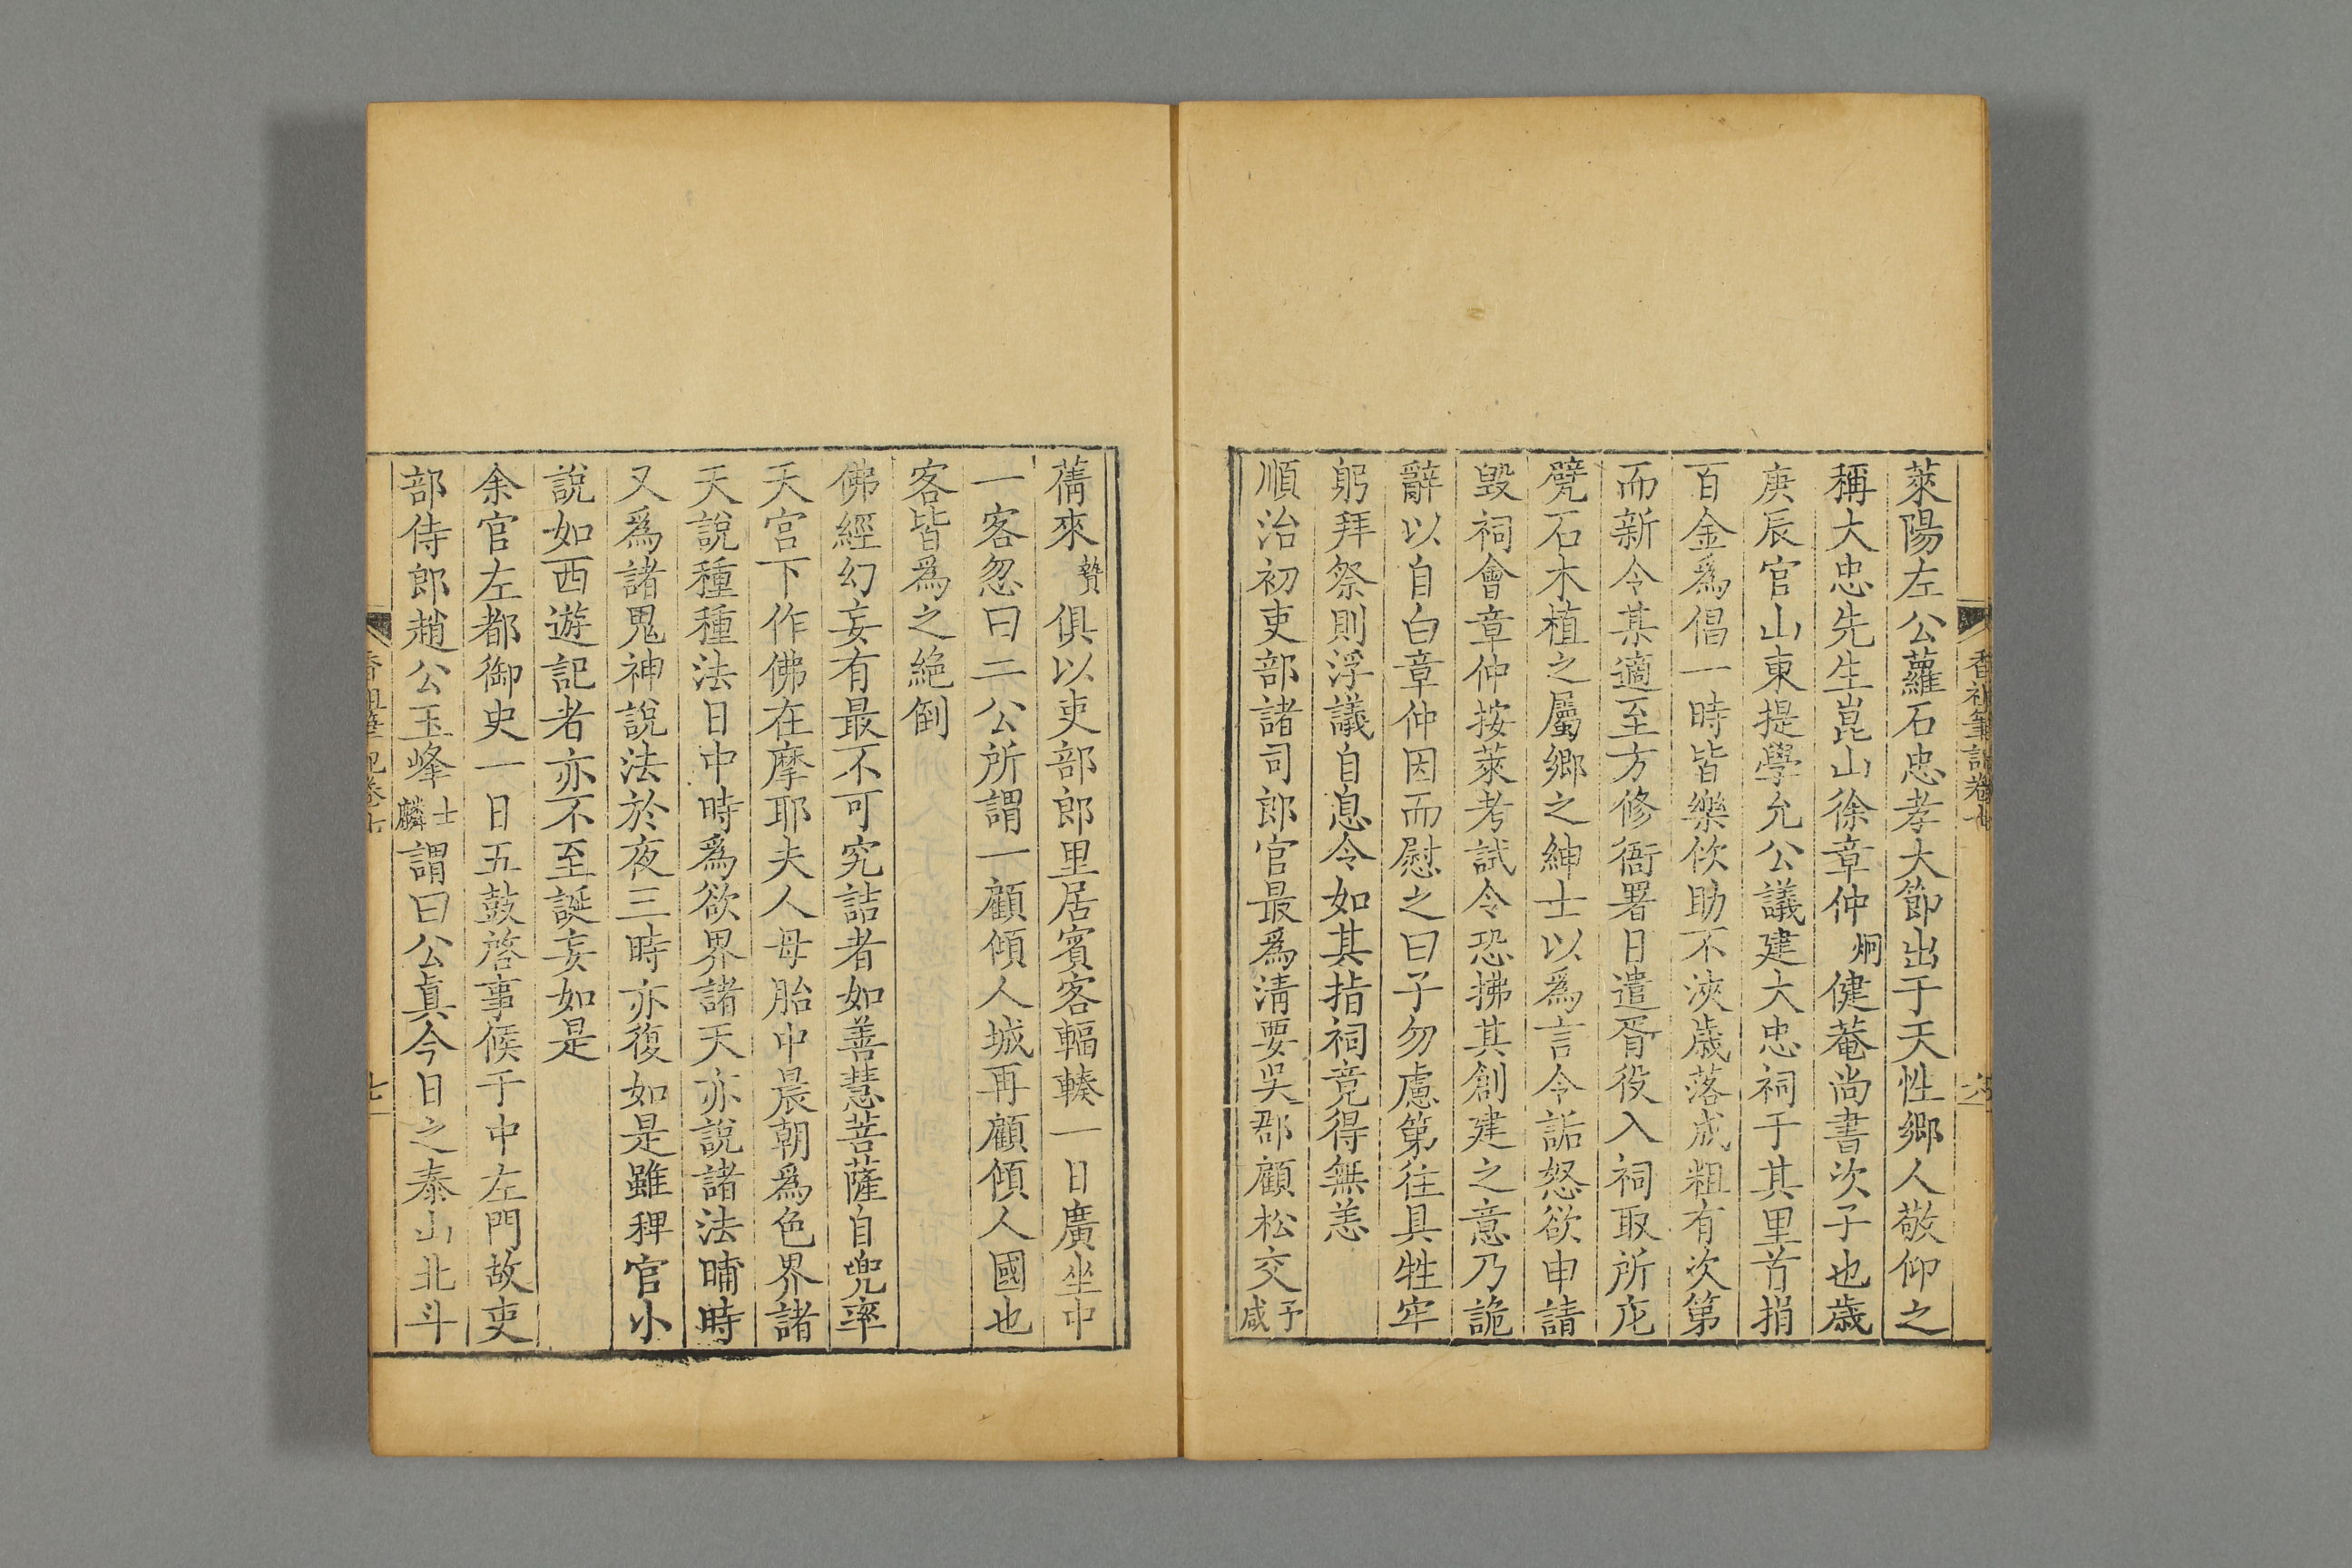 香祖筆記卷七
六
萊陽左公蘿石忠孝大節出于天性鄉人敬仰之
稱大忠先生崑山徐章仲炯健菴尚書次子也歲
庚辰官山東提學允公議建大忠祠于其里首捐
百金爲倡一時皆樂佽助不浹歲落成粗有次第
而新令某適至方修衙署日遣胥役入祠取所庀
甓石木植之屬鄉之紳士以爲言令詬怒欲申請
毀祠會章仲按萊考試令恐拂其創建之意乃詭
辭以自白章仲因而慰之曰子勿慮第往具牲牢
躬拜祭則浮議自息令如其指祠竟得無恙
順治初吏部諸司郎官最爲淸要吳郡顧松交予咸
蒨來贄俱以吏部郎里居賓客輻輳一日廣坐中
一客忽曰二公所謂一顧傾人城再顧傾人國也
客皆爲之絶倒
佛經幻妄有最不可究詰者如善慧菩薩自兜率
天宮下作佛在摩耶夫人母胎中晨朝爲色界諸
天說種種法日中時爲欲界諸天亦說諸法晡時
又爲諸鬼神說法於夜三時亦復如是雖稗官小
說如西遊記者亦不至誕妄如是
余官左都御史一日五鼓啓事候于中左門故吏
部侍郎趙公玉峰士麟謂曰公眞今日之泰山北斗
香祖筆記卷七
七